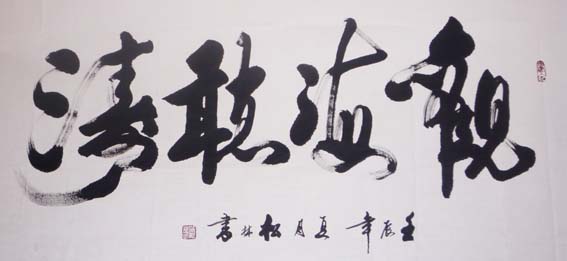 觀海聽濤
壬辰年夏月松林書